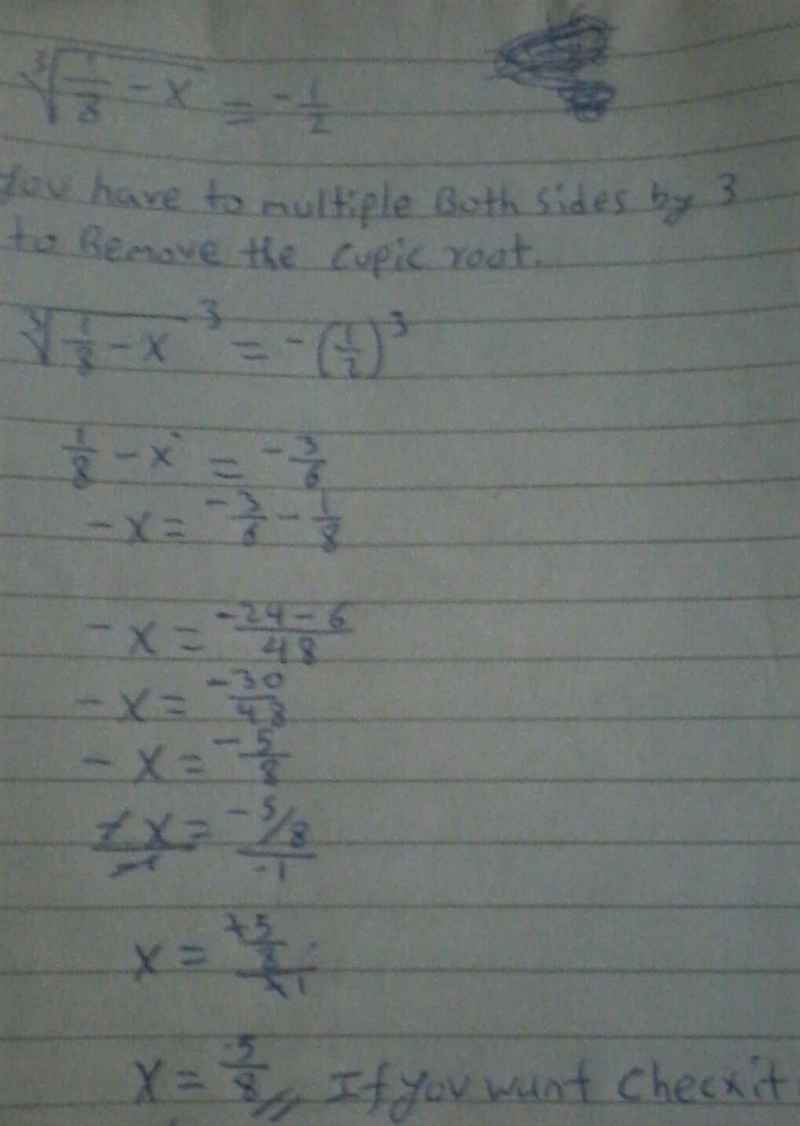 ∛(1/8 - x) = -1/2
You have to multiple Both sides by 3
to Remove the cupic root.
∛(1/8 - x)³ = -(1/2)³
1/8 - x = -3/6
-x = -3/6 - 1/8
-x = (-24-6)/48
-x = -30/48
-x = -5/8
-x/-1 = (-5/8)/-1
x = (+5/8)/+1
x = 5/8 // If you want Checxit